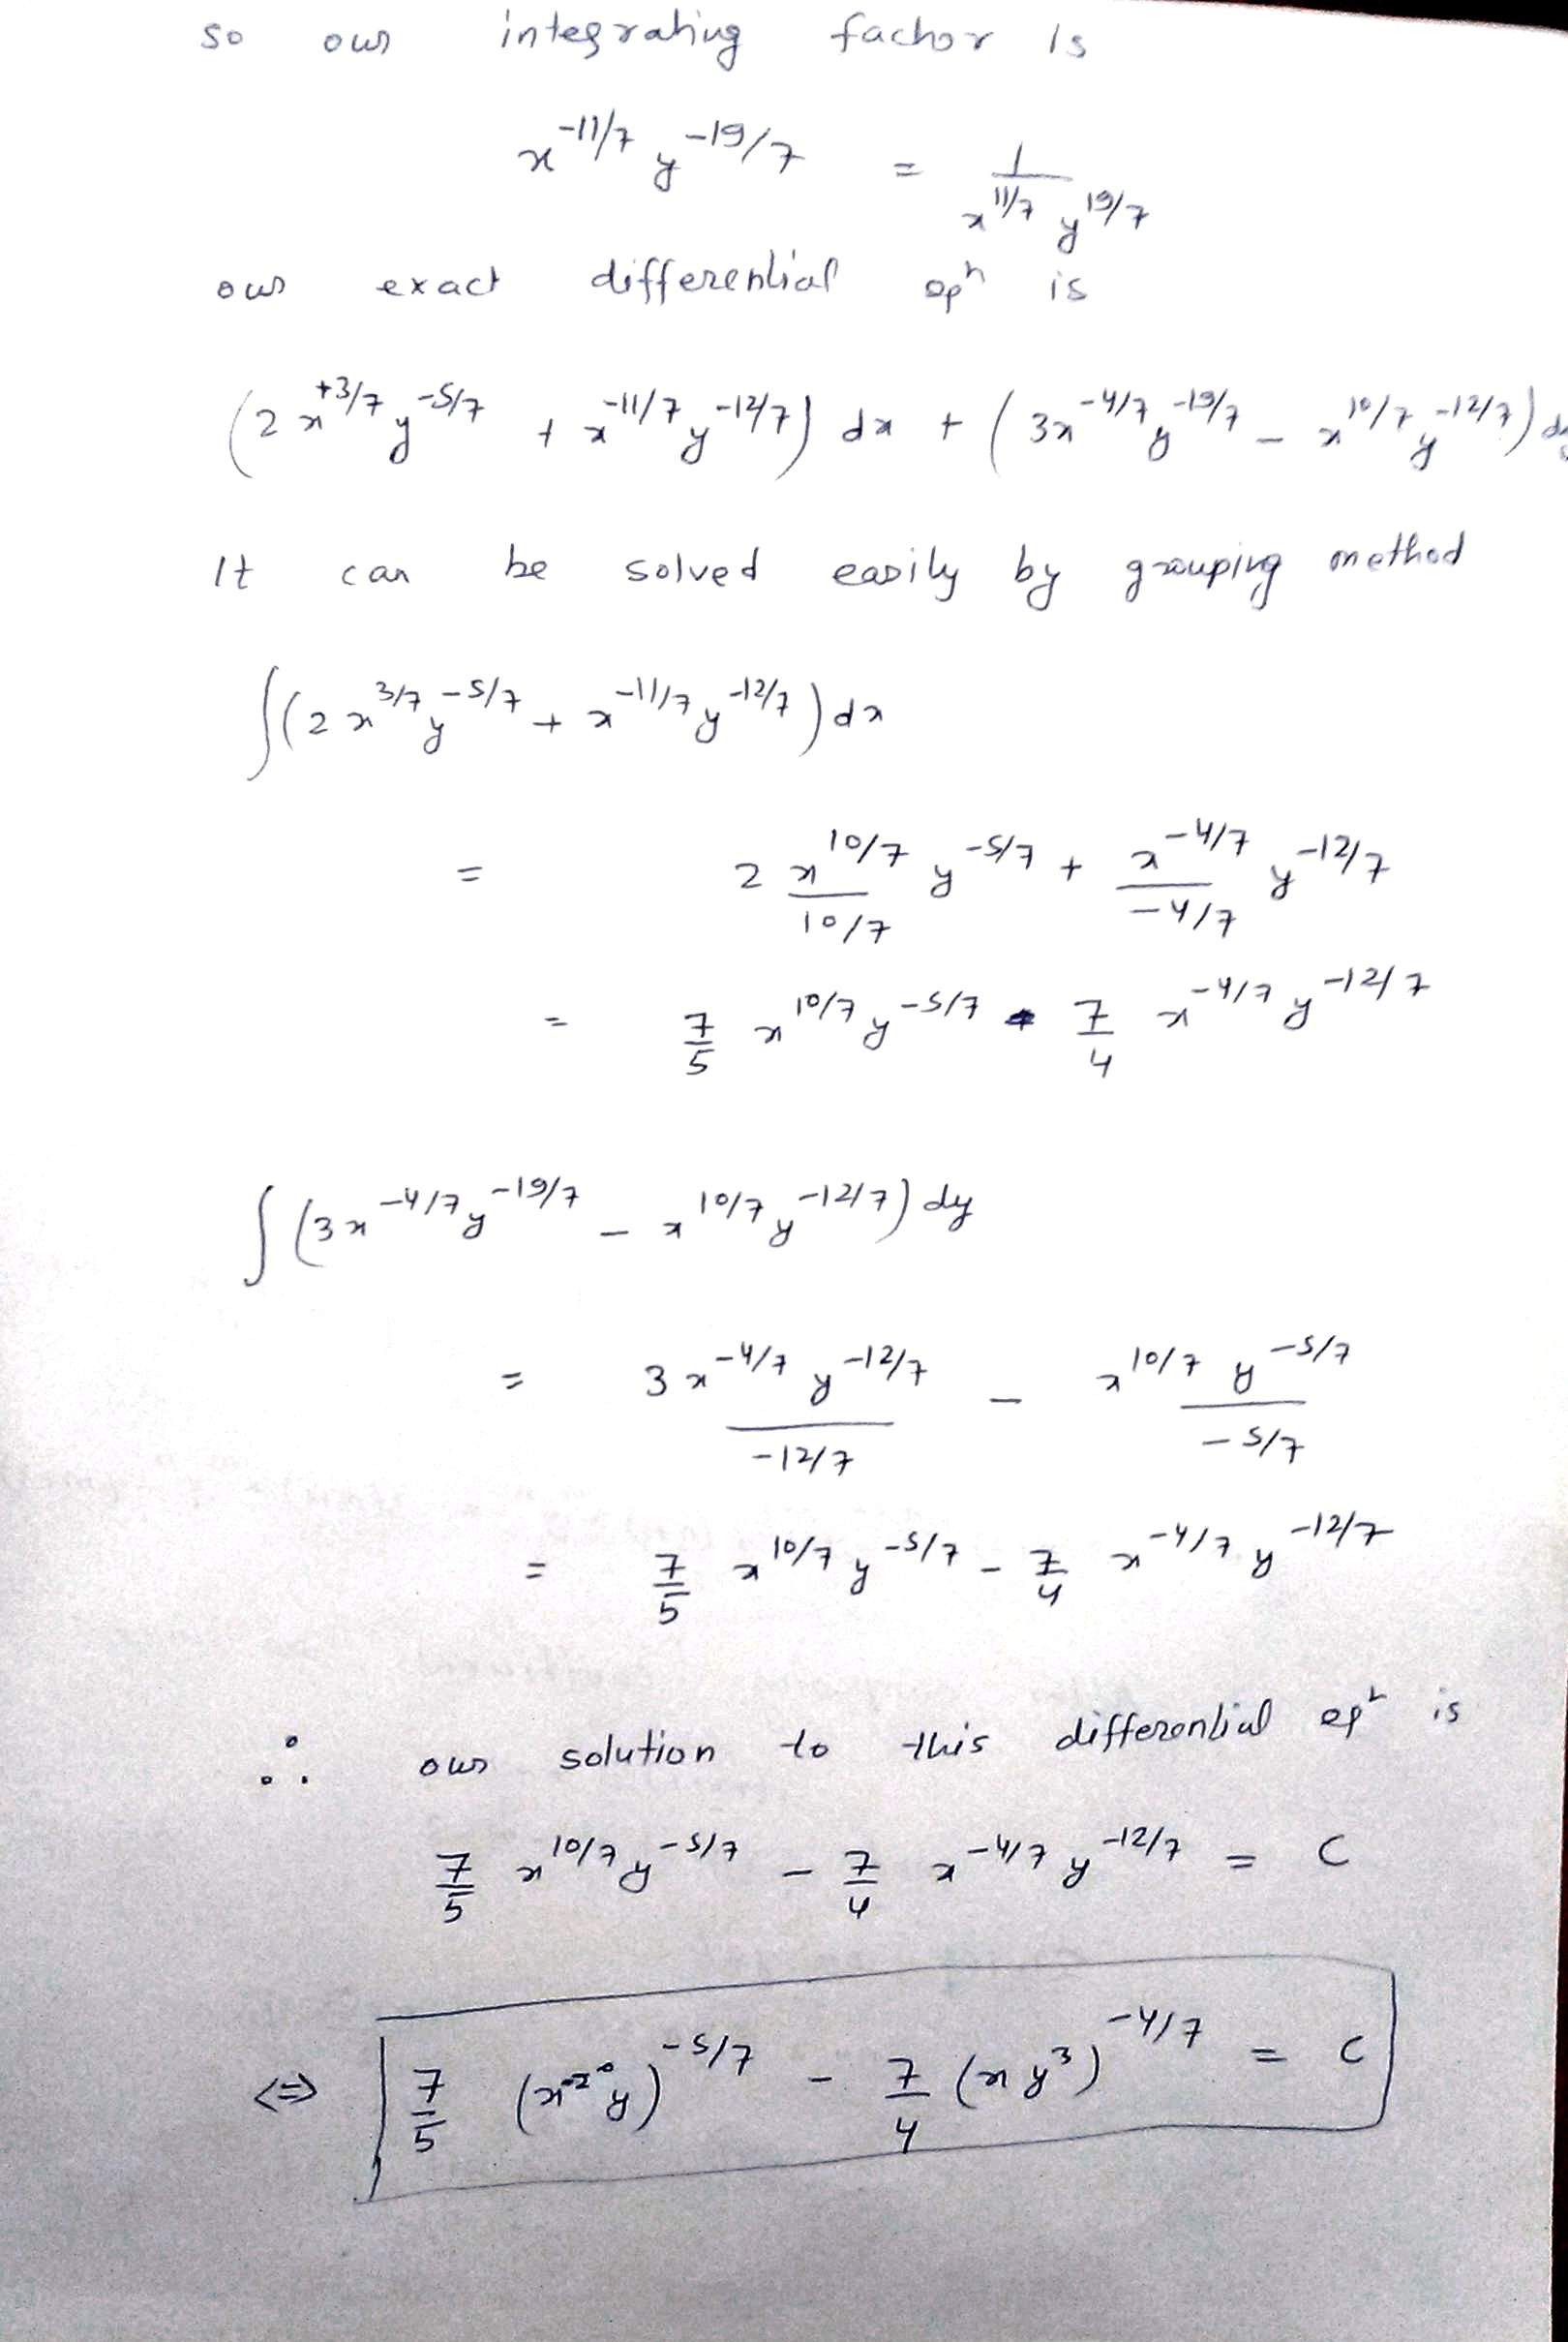 so our integrating factor is
x^{-11/7} y^{-19/7} = 1 / (x^{11/7} y^{19/7})
our exact differential eqⁿ is
(2x^{+3/7} y^{-5/7} + x^{-11/7} y^{-12/7}) dx + (3x^{-4/7} y^{-19/7} - x^{10/7} y^{-12/7}) dy
It can be solved easily by grouping method
∫(2x^{3/7} y^{-5/7} + x^{-11/7} y^{-12/7}) dx
= 2 x^{10/7}/(10/7) y^{-5/7} + x^{-4/7}/(-4/7) y^{-12/7}
= 7/5 x^{10/7} y^{-5/7} - 7/4 x^{-4/7} y^{-12/7}
∫(3x^{-4/7} y^{-19/7} - x^{10/7} y^{-12/7}) dy
= 3x^{-4/7} y^{-12/7}/(-12/7) - x^{10/7} y^{-5/7}/(-5/7)
= 7/5 x^{10/7} y^{-5/7} - 7/4 x^{-4/7} y^{-12/7}
∴ our solution to this differential eqⁿ is
7/5 x^{10/7} y^{-5/7} - 7/4 x^{-4/7} y^{-12/7} = C
<=> 7/5 (x^{-2} y)^{-5/7} - 7/4 (x y^3)^{-4/7} = C